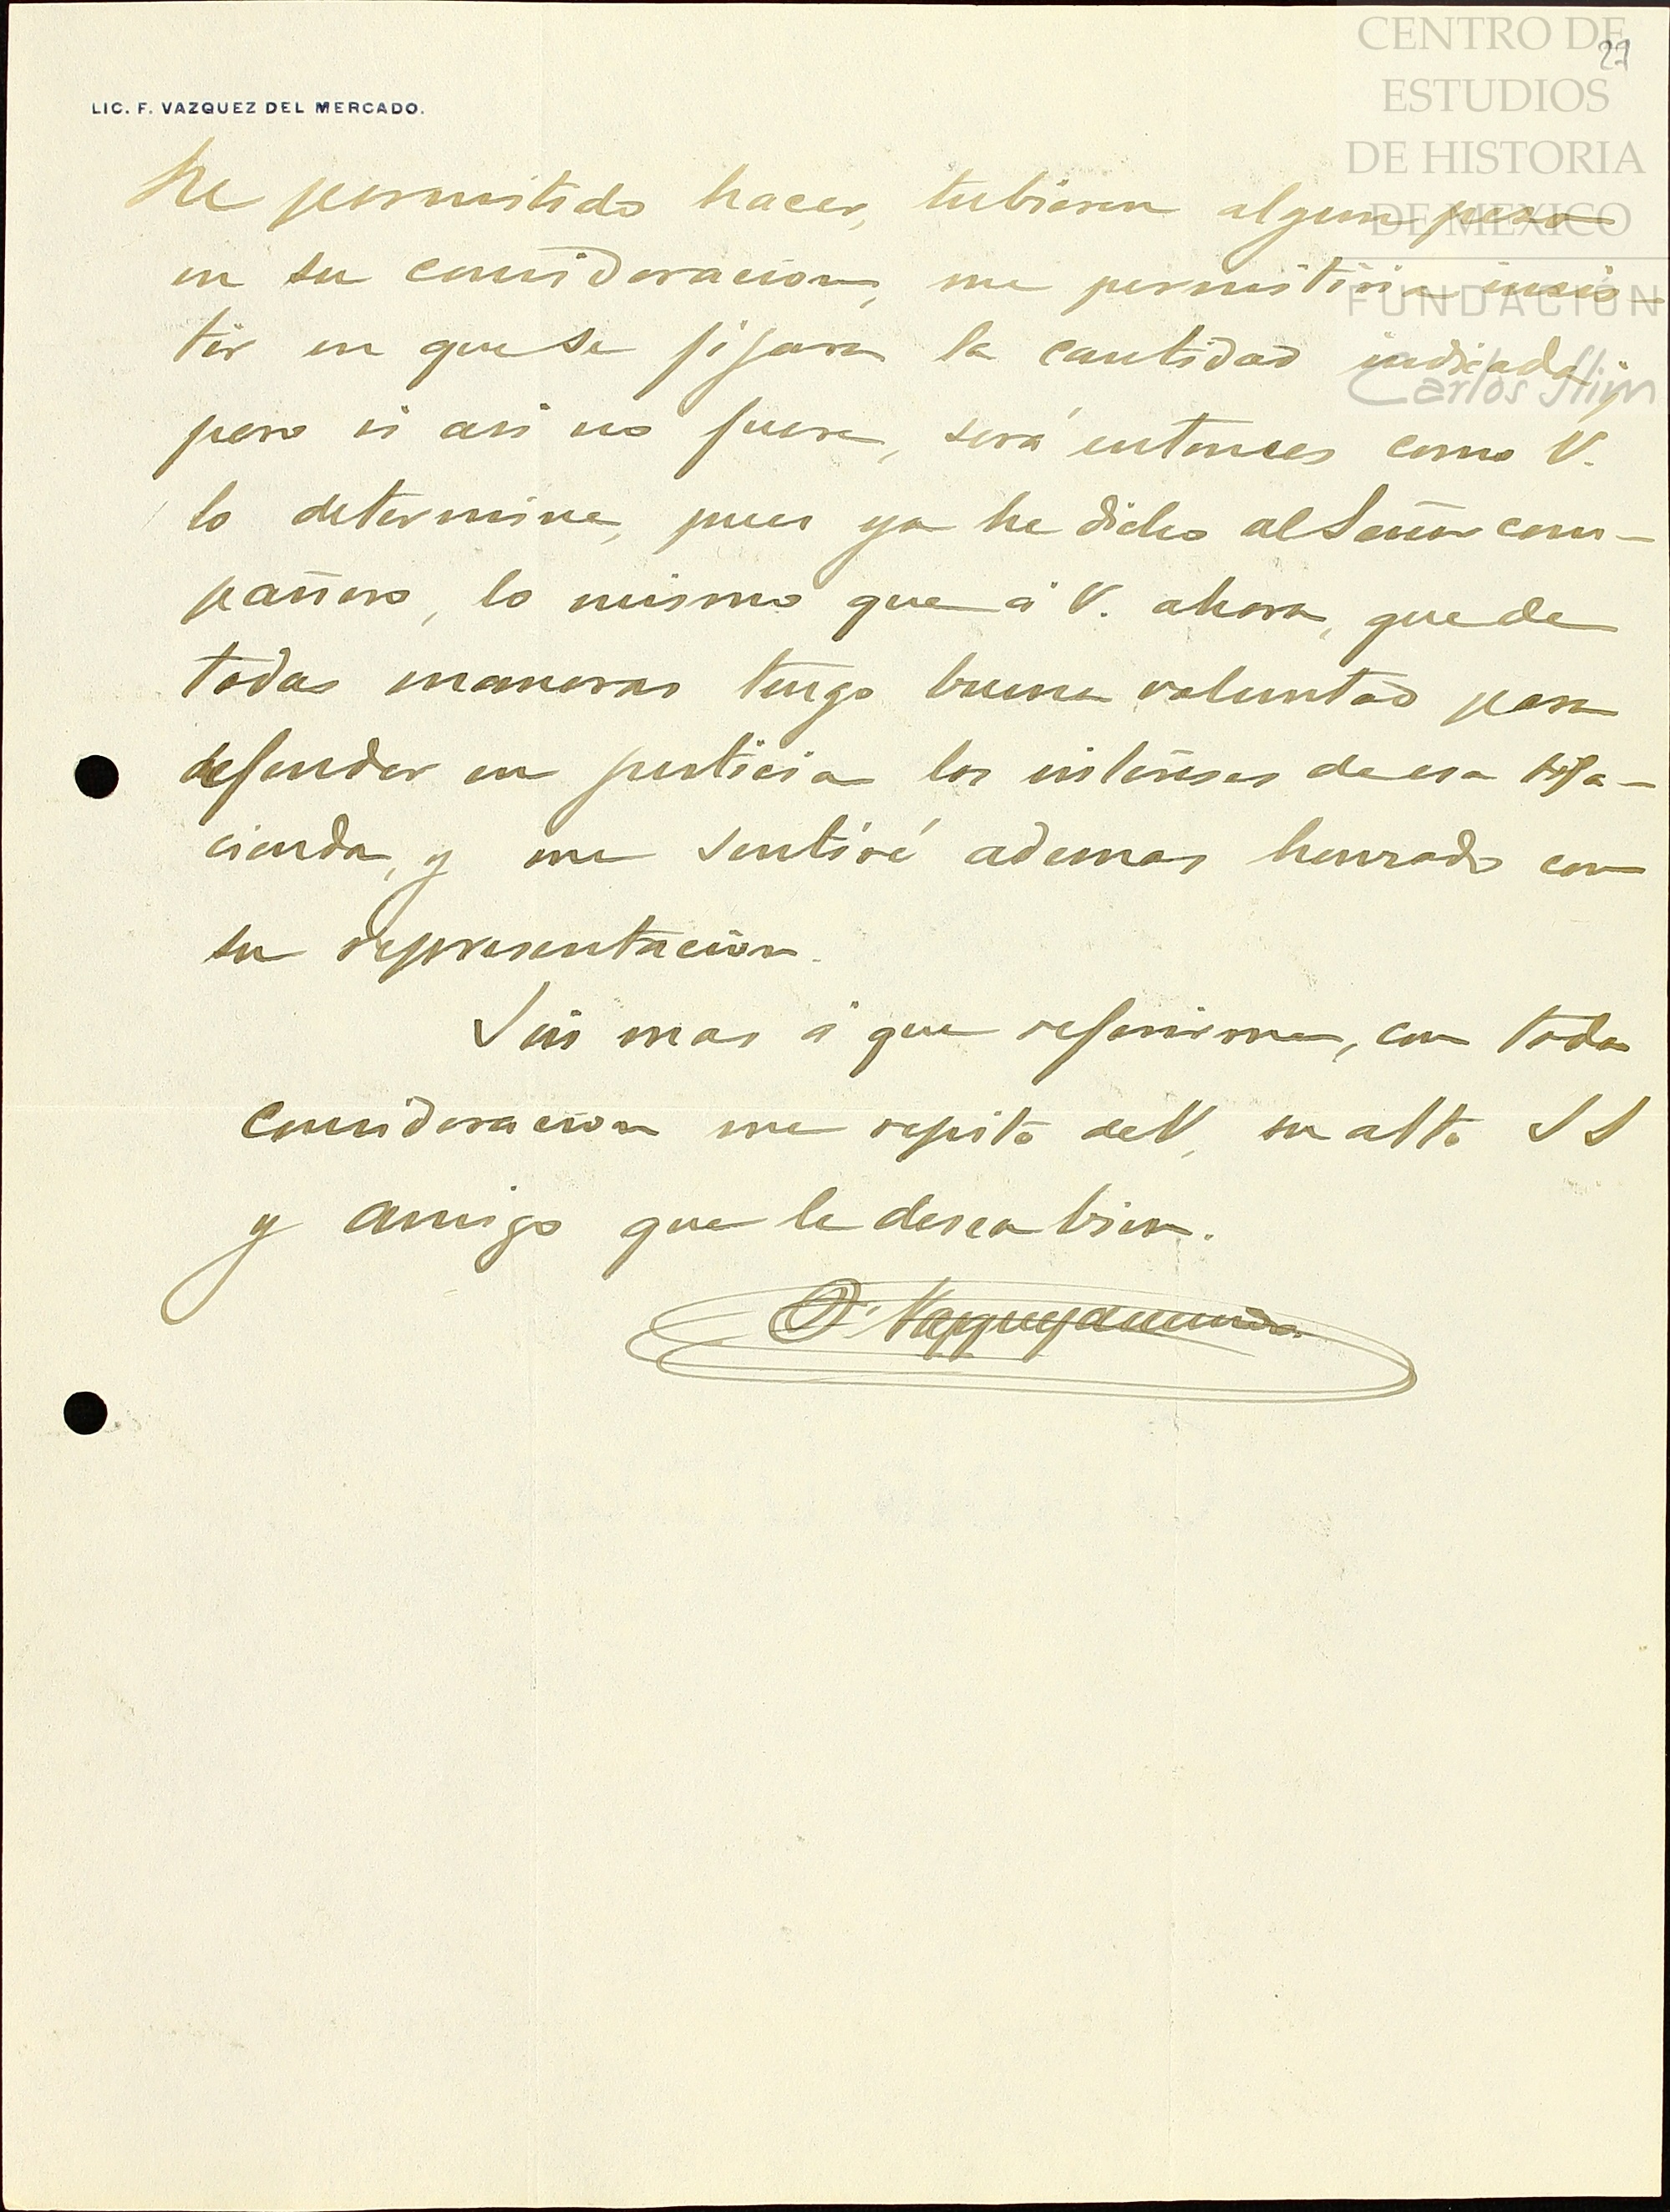 CENTRO DE
ESTUDIOS
DE HISTORIA
DE MEXICO
FUNDACIÓN
Carlos Slim
27
LIC. F. VAZQUEZ DEL MERCADO.
he permitido hacer, tubieren algun peso
en su consideracion, me permitiria incis-
tir en que se fijara la cantidad indicada;
pero si asi no fuere, será entonces como V.
lo determine, pues ya he dicho al Señor com-
pañero, lo mismo que á V. ahora, que de
todas maneras tengo buena voluntad para
defender en justicia los intereses de esa Ha-
cienda, y me sentiré ademas honrado con
su representacion.
Sin mas á que referirme, con toda
consideracion me repito de V, su atto S S
y amigo que le desea bien.